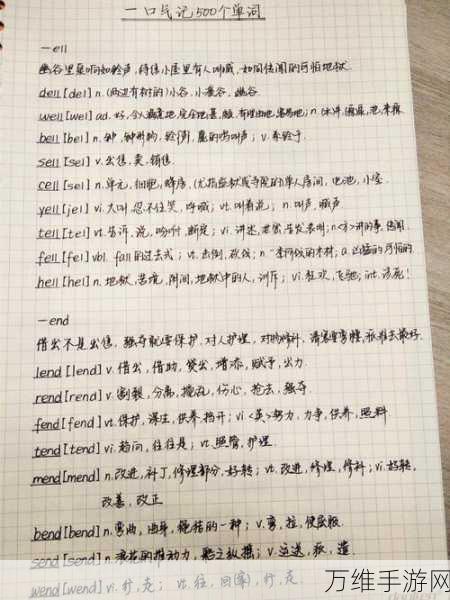 一口气记500个单词
—ell
幽谷里泉响如铃声,待售小屋里有人叫喊,如同传闻的可怕地狱.
dell [del] n.(两边有树的)小谷,小溪谷,幽谷
well [wel] ad.好,令人满意地,完全地;n.
bell [bel] n.钟,钟形物,铃;v.系铃于
sell [sel] v.出售,卖,销售
cell [sel] n.单元,细胞,蜂房,(尤指监狱或寺院的)单人房间,电池,小室
yell [jel] vi.大叫,忍不住笑,呼喊;vt.叫着说;n.叫声,喊声
tell [tel] vt.告诉,说,吩咐,断定;vi.讲述,泄密,告发,表明;n<方>讲的事,传闻
fell [fel] vbl. fall的过去式;vt.击倒,砍伐;n.一季所伐的木材;a.凶猛的,可怕的
hell [hel] n.地狱,苦境,阴间,地狱中的人,训斥;vi.狂欢,飞驰;int.该死!
—end
借出不是出售,强夺就要保护,对人护理,对物修补,请客要弯腰,派谁去最好.
lend [lend] v.借出,借助,贷出,增添,赋予,出力
rend [rend] v.割裂,分离,搅乱,伤心,抢去,强夺
fend [fend] vt.保护,谋生,供养,挡开;vi<英>努力,力争,供养,照料
tend [tend] vi.趋向,往往是;vt.照管,护理
mend [mend] n.改进,补丁,修理部分,好转;vt.改进,修理,修补;vi.好转,
改善,改正
bend [bend] n.弯曲,曲身,绳结的一种;v.弯,拉,使屈服
send [send] n.波浪的推动力,船之纵摇;v.运送,派,遣
wend [wend] vi.行,走;vt.往,回(家),行,走
万维手游网